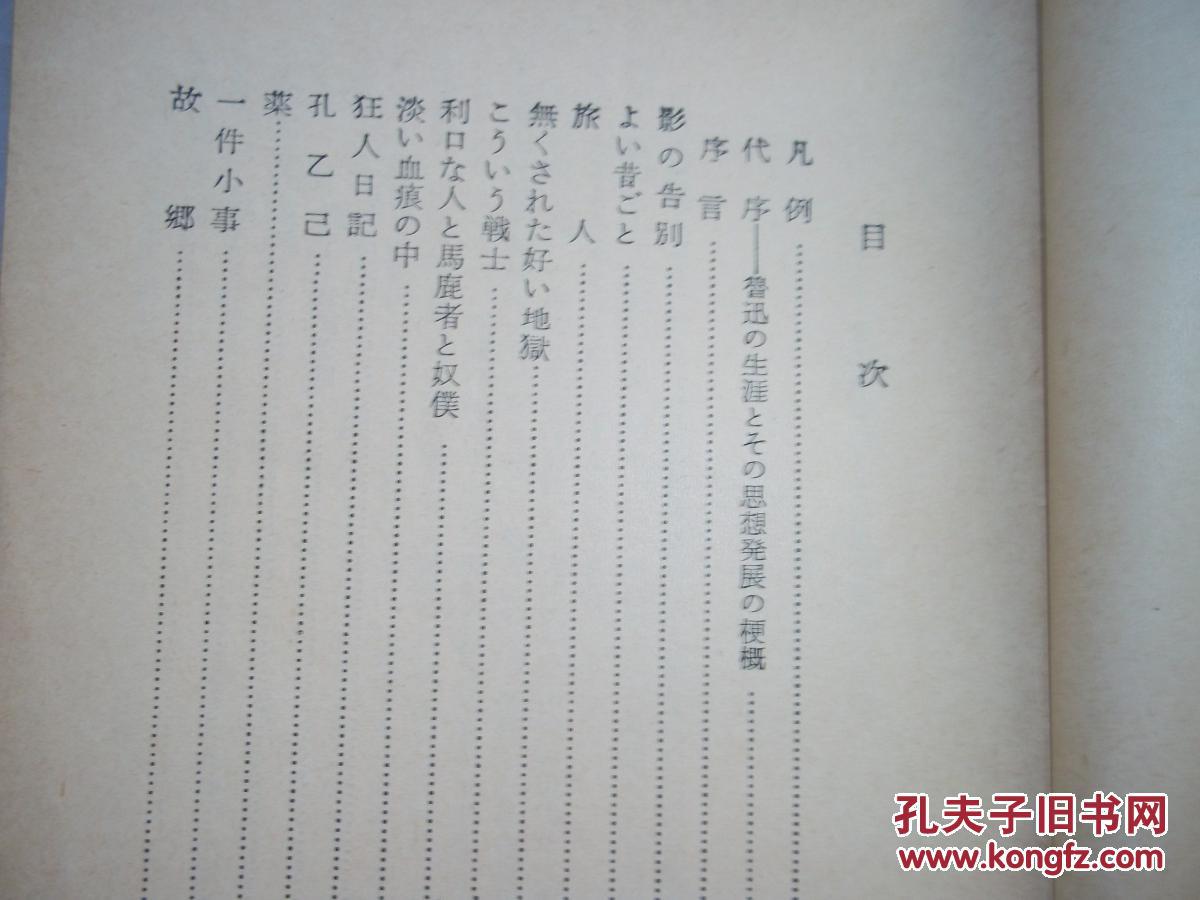 目次
凡例
代序——魯迅の生涯とその思想発展の梗概
序言
影の告別
よい昔ごと
旅人
無くされた好い地獄
こういう戦士
利口な人と馬鹿者と奴僕
淡い血痕の中
狂人日記
孔乙己
薬
一件小事
故郷
孔夫子旧书网
www.kongfz.com